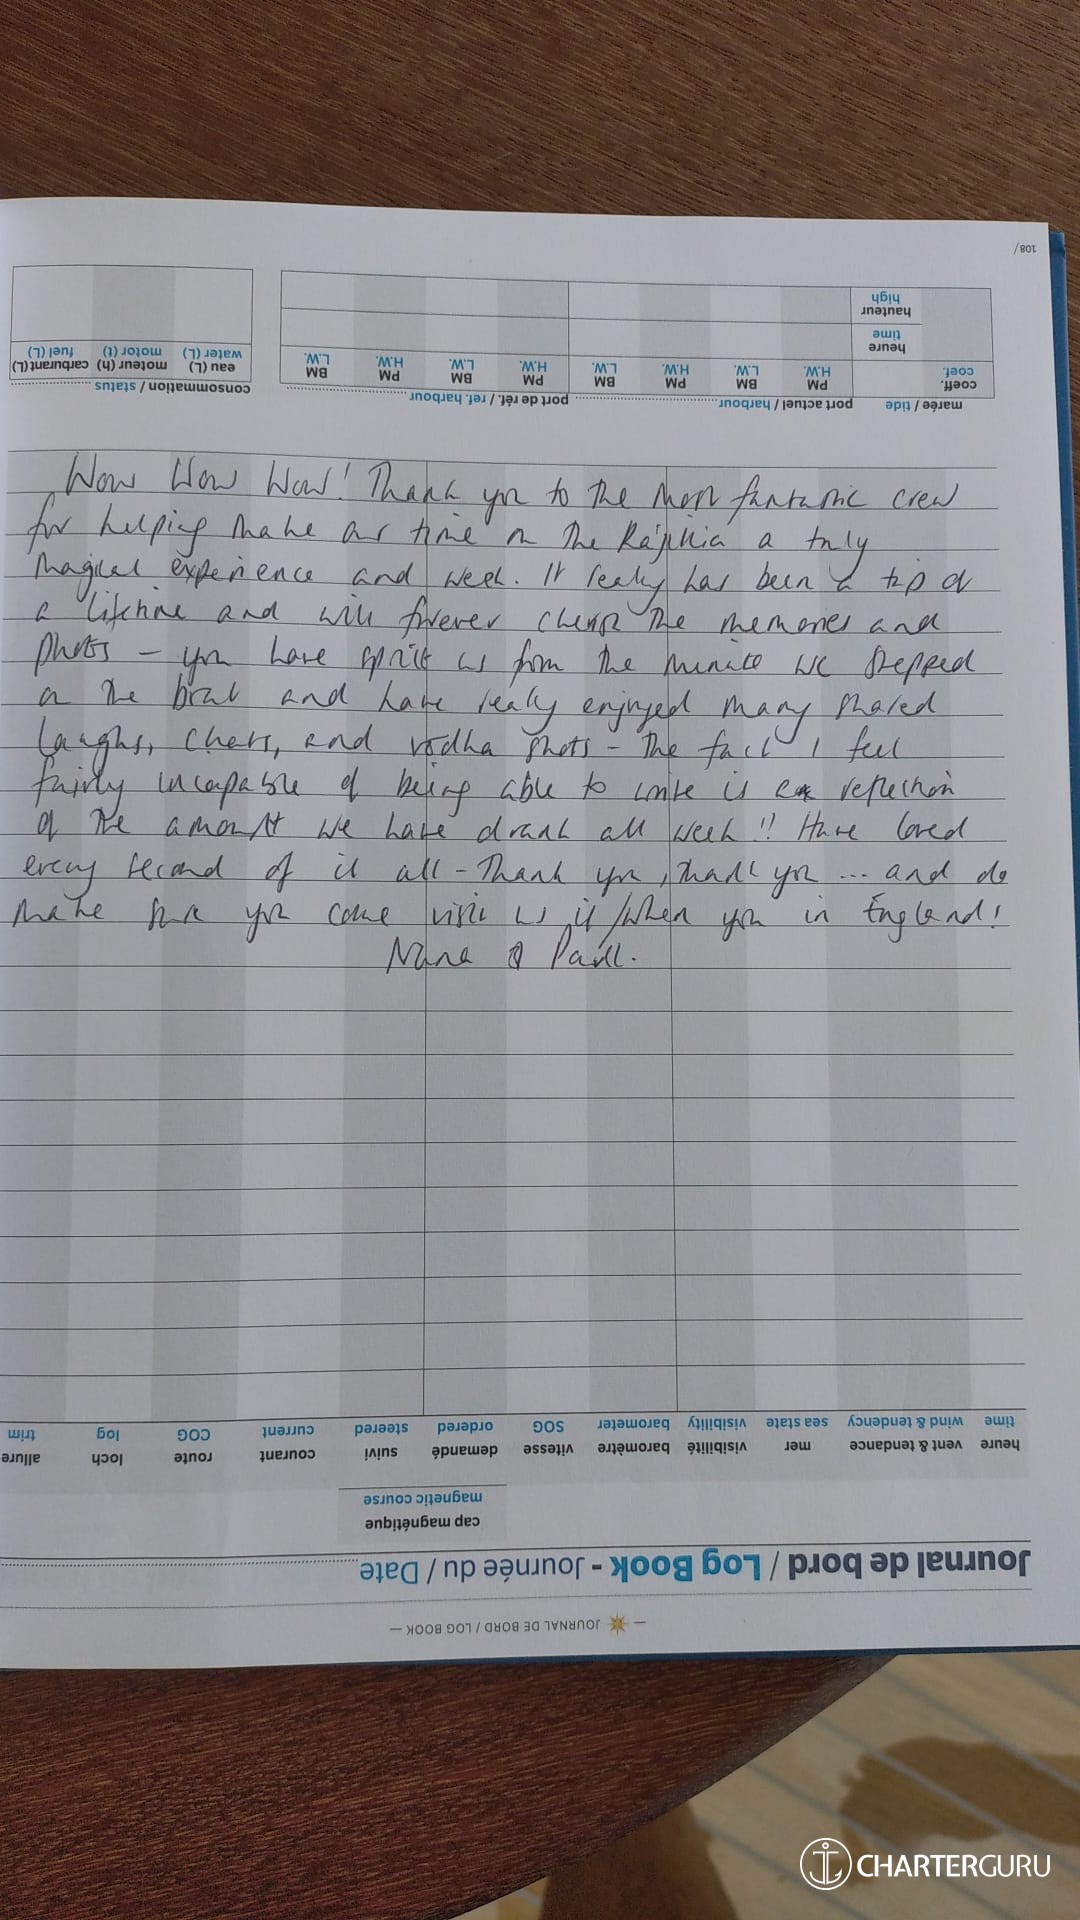 Wow Wow Wow! Thank you to the most fantastic crew
for helping make our time on the a truly
magical experience and week. It really has been a trip of
a lifetime and will forever cherish the memories and
photos – you have spoilt us from the minute we stepped
on the boat and have really enjoyed many shared
laughs, cheers, and vodka shots – the fact I feel
fairly incapable of being able to write is a reflection
of the amount we have drank all week!! Have loved
every second of it all – Thank you, thank you ... and do
make sure you come visit us if/when you in England!
& Paul.
108/
marée / tide port actuel / harbour port de réf. / ref. harbour consommation / status
coeff. PM BM PM BM PM BM PM BM eau (L) moteur (h) carburant (L)
coef. H.W. L.W. H.W. L.W. H.W. L.W. H.W. L.W. water (L) motor (t) fuel (L)
heure
time
hauteur
high
— JOURNAL DE BORD / LOG BOOK —
Journal de bord / Log Book - Journée du / Date
cap magnétique
magnetic course
heure vent & tendance mer visibilité baromètre vitesse demandé suivi courant route loch allure
time wind & tendency sea state visibility barometer SOG ordered steered current COG log trim
CHARTERGURU